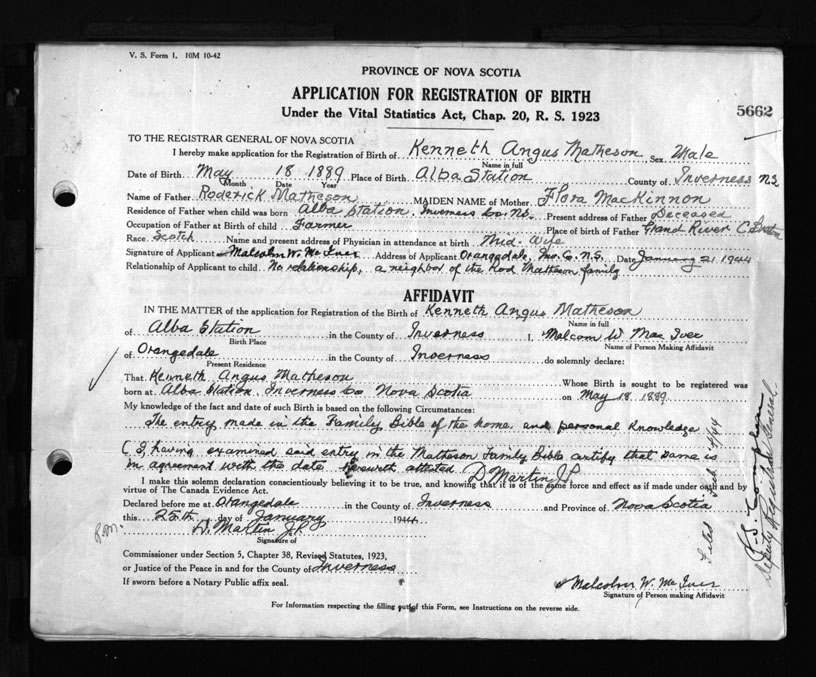 V. S. Form 1. 10M 10-42
PROVINCE OF NOVA SCOTIA
APPLICATION FOR REGISTRATION OF BIRTH
Under the Vital Statistics Act, Chap. 20, R. S. 1923
5662
TO THE REGISTRAR GENERAL OF NOVA SCOTIA
I hereby make application for the Registration of Birth of Kenneth Angus Matheson Sex Male
Name in full
Date of Birth May 18 1889 Place of Birth Alba Station County of Inverness N.S.
Month Date Year
Name of Father Roderick Matheson MAIDEN NAME of Mother Flora MacKinnon
Residence of Father when child was born Alba Station, Inverness Co. N.S. Present address of Father Deceased
Occupation of Father at Birth of child Farmer Place of birth of Father Grand River C. Breton
Race Scotch Name and present address of Physician in attendance at birth Mid-Wife
Signature of Applicant Malcolm W. McIver Address of Applicant Orangedale, Inv. Co. N.S. Date January 21 1944
Relationship of Applicant to child No relationship, a neighbor of the Rod Matheson family
AFFIDAVIT
IN THE MATTER of the application for Registration of the Birth of Kenneth Angus Matheson
Name in full
of Alba Station in the County of Inverness I, Malcom W. MacIver
Birth Place Name of Person Making Affidavit
of Orangedale in the County of Inverness do solemnly declare:
Present Residence
That Kenneth Angus Matheson Whose Birth is sought to be registered was
born at Alba Station, Inverness Co Nova Scotia on May 18 1889
My knowledge of the fact and date of such Birth is based on the following Circumstances:
The entry made in the Family Bible of the home, and personal knowledge
I, having examined said entry in the Matheson Family Bible certify that same is
in agreement with the date herewith attested D Martin J.P.
I make this solemn declaration conscientiously believing it to be true, and knowing that it is of the same force and effect as if made under oath and by
virtue of The Canada Evidence Act.
Declared before me at Orangedale in the County of Inverness and Province of Nova Scotia
this 25th day of January 1944
D. Martin J.P.
Signature of
Commissioner under Section 5, Chapter 38, Revised Statutes, 1923,
or Justice of the Peace in and for the County of Inverness
If sworn before a Notary Public affix seal.
Malcolm W. McIver
Signature of Person making Affidavit
For Information respecting the filling out of this Form, see Instructions on the reverse side.
Filed
Deputy Registrar General